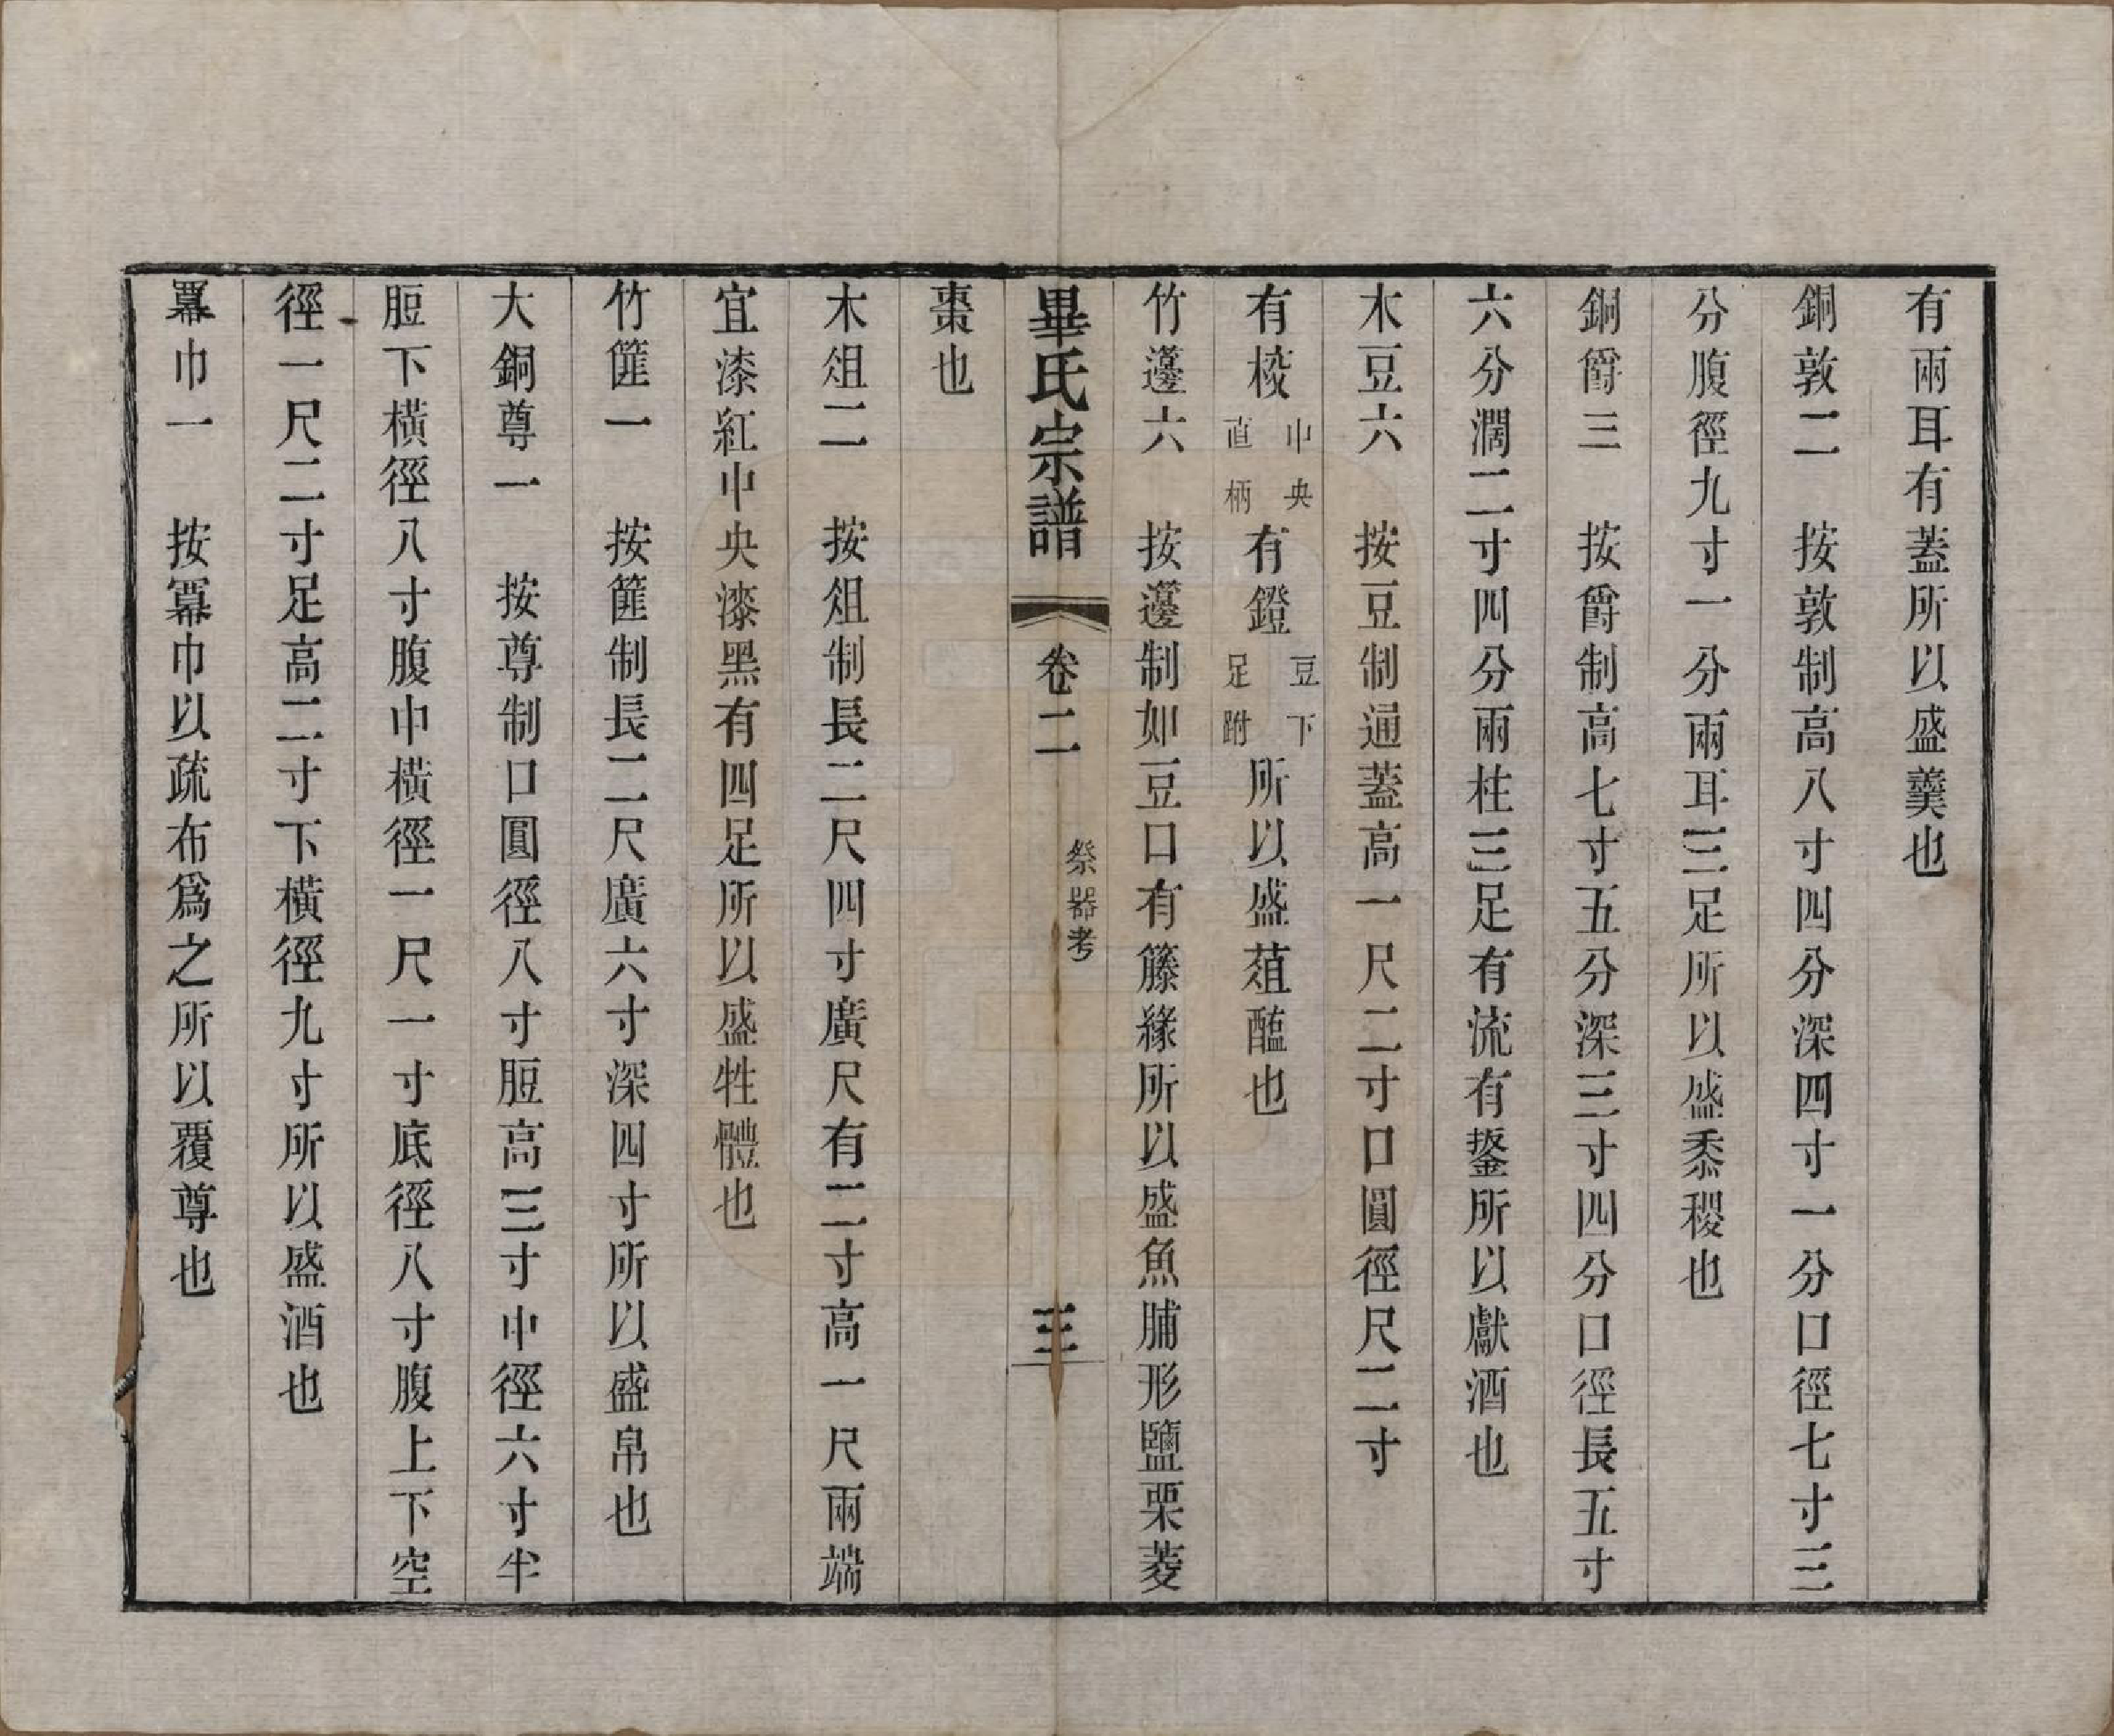 有兩耳有蓋所以盛羹也
銅敦二　按敦制高八寸四分深四寸一分口徑七寸三
分腹徑九寸一分兩耳三足所以盛黍稷也
銅爵三　按爵制高七寸五分深三寸四分口徑長五寸
六分濶二寸四分兩柱三足有流有鋬所以獻酒也
木豆六　按豆制通蓋高一尺二寸口圓徑尺二寸
有棱中央直柄有鐙豆下足跗所以盛葅醢也
竹籩六　按籩制如豆口有籐緣所以盛魚脯形鹽栗菱
畢氏宗譜　卷二　祭器考　三
棗也
木俎二　按俎制長二尺四寸廣尺有二寸高一尺兩端
宜漆紅中央漆黑有四足所以盛牲體也
竹篚一　按篚制長二尺廣六寸深四寸所以盛帛也
大銅尊一　按尊制口圓徑八寸脰高三寸中徑六寸半
脰下橫徑八寸腹中橫徑一尺一寸底徑八寸腹上下空
徑一尺二寸足高二寸下橫徑九寸所以盛酒也
羃巾一　按冪巾以疏布爲之所以覆尊也